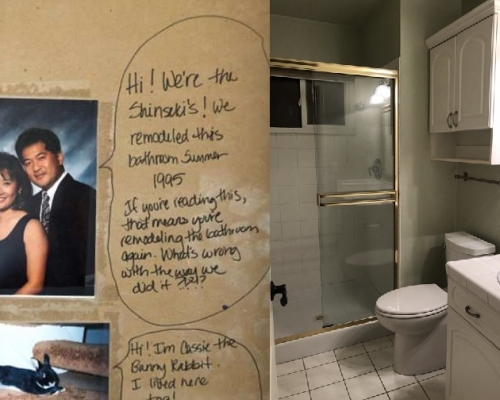 Hi! We're the
Shinseki's! We
remodeled this
bathroom Summer
1995
If you're reading this,
that means you're
remodeling the bathroom
again. What's wrong
with the way we
did it ?!?!?
Hi! I'm Cassie the
Bunny Rabbit.
I lived here
too!